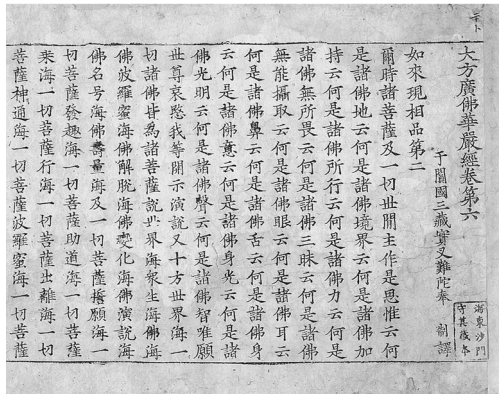 大方廣佛華嚴經卷第六
于闐國三藏實叉難陀奉 制譯
海東沙門
守其藏本
如來現相品第二
爾時諸菩薩及一切世間主作是思惟云何
是諸佛地云何是諸佛境界云何是諸佛加
持云何是諸佛所行云何是諸佛力云何是
諸佛無所畏云何是諸佛三昧云何是諸佛
無能攝取云何是諸佛眼云何是諸佛耳云
何是諸佛鼻云何是諸佛舌云何是諸佛身
云何是諸佛意云何是諸佛身光云何是諸
佛光明云何是諸佛聲云何是諸佛智唯願
世尊哀愍我等開示演說又十方世界海一
切諸佛皆為諸菩薩說世界海衆生海佛海
佛波羅蜜海佛解脫海佛變化海佛演說海
佛名号海佛壽量海及一切菩薩誓願海一
切菩薩發趣海一切菩薩助道海一切菩薩
乘海一切菩薩行海一切菩薩出離海一切
菩薩神通海一切菩薩波羅蜜海一切菩薩